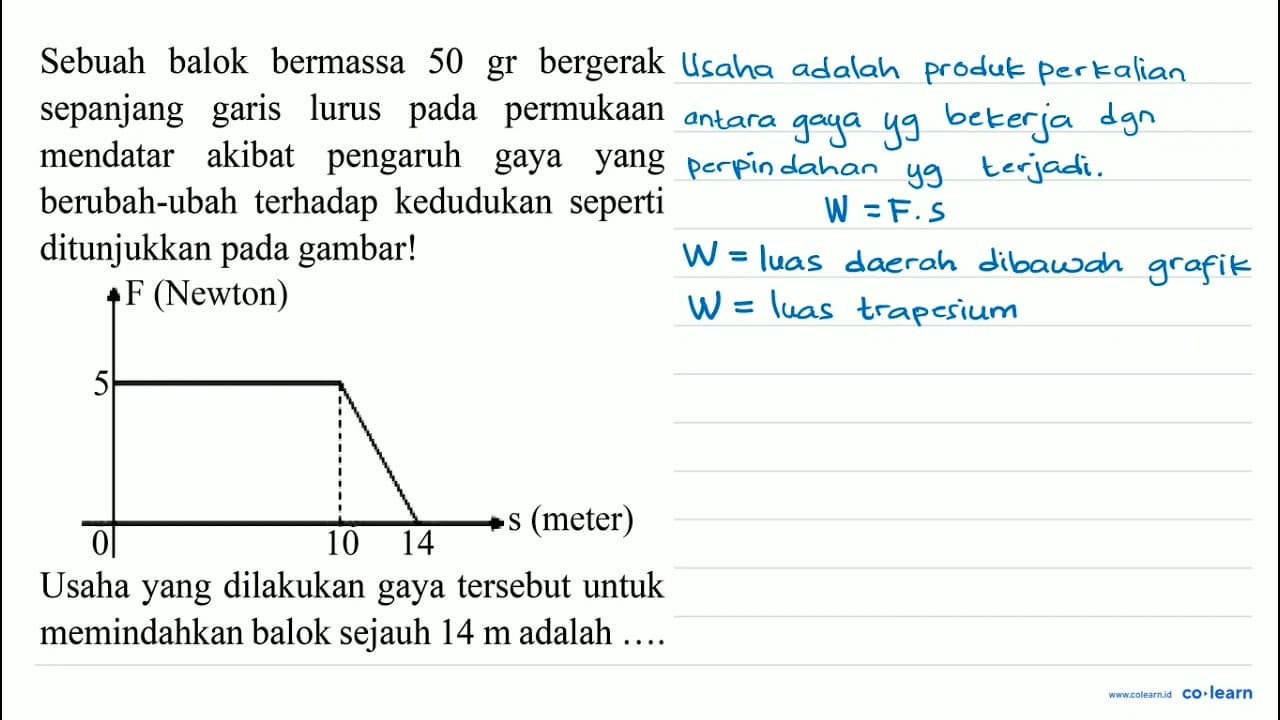 Sebuah balok bermassa 50 gr bergerak
sepanjang garis lurus pada permukaan
mendatar akibat pengaruh gaya yang
berubah-ubah terhadap kedudukan seperti
ditunjukkan pada gambar!
F (Newton)
5
s (meter)
0 10 14
Usaha yang dilakukan gaya tersebut untuk
memindahkan balok sejauh 14 m adalah ....
Usaha adalah produk perkalian
antara gaya yg bekerja dgn
perpindahan yg terjadi.
W = F. s
W = luas daerah dibawah grafik
W = luas trapesium
www.colearn.id co·learn